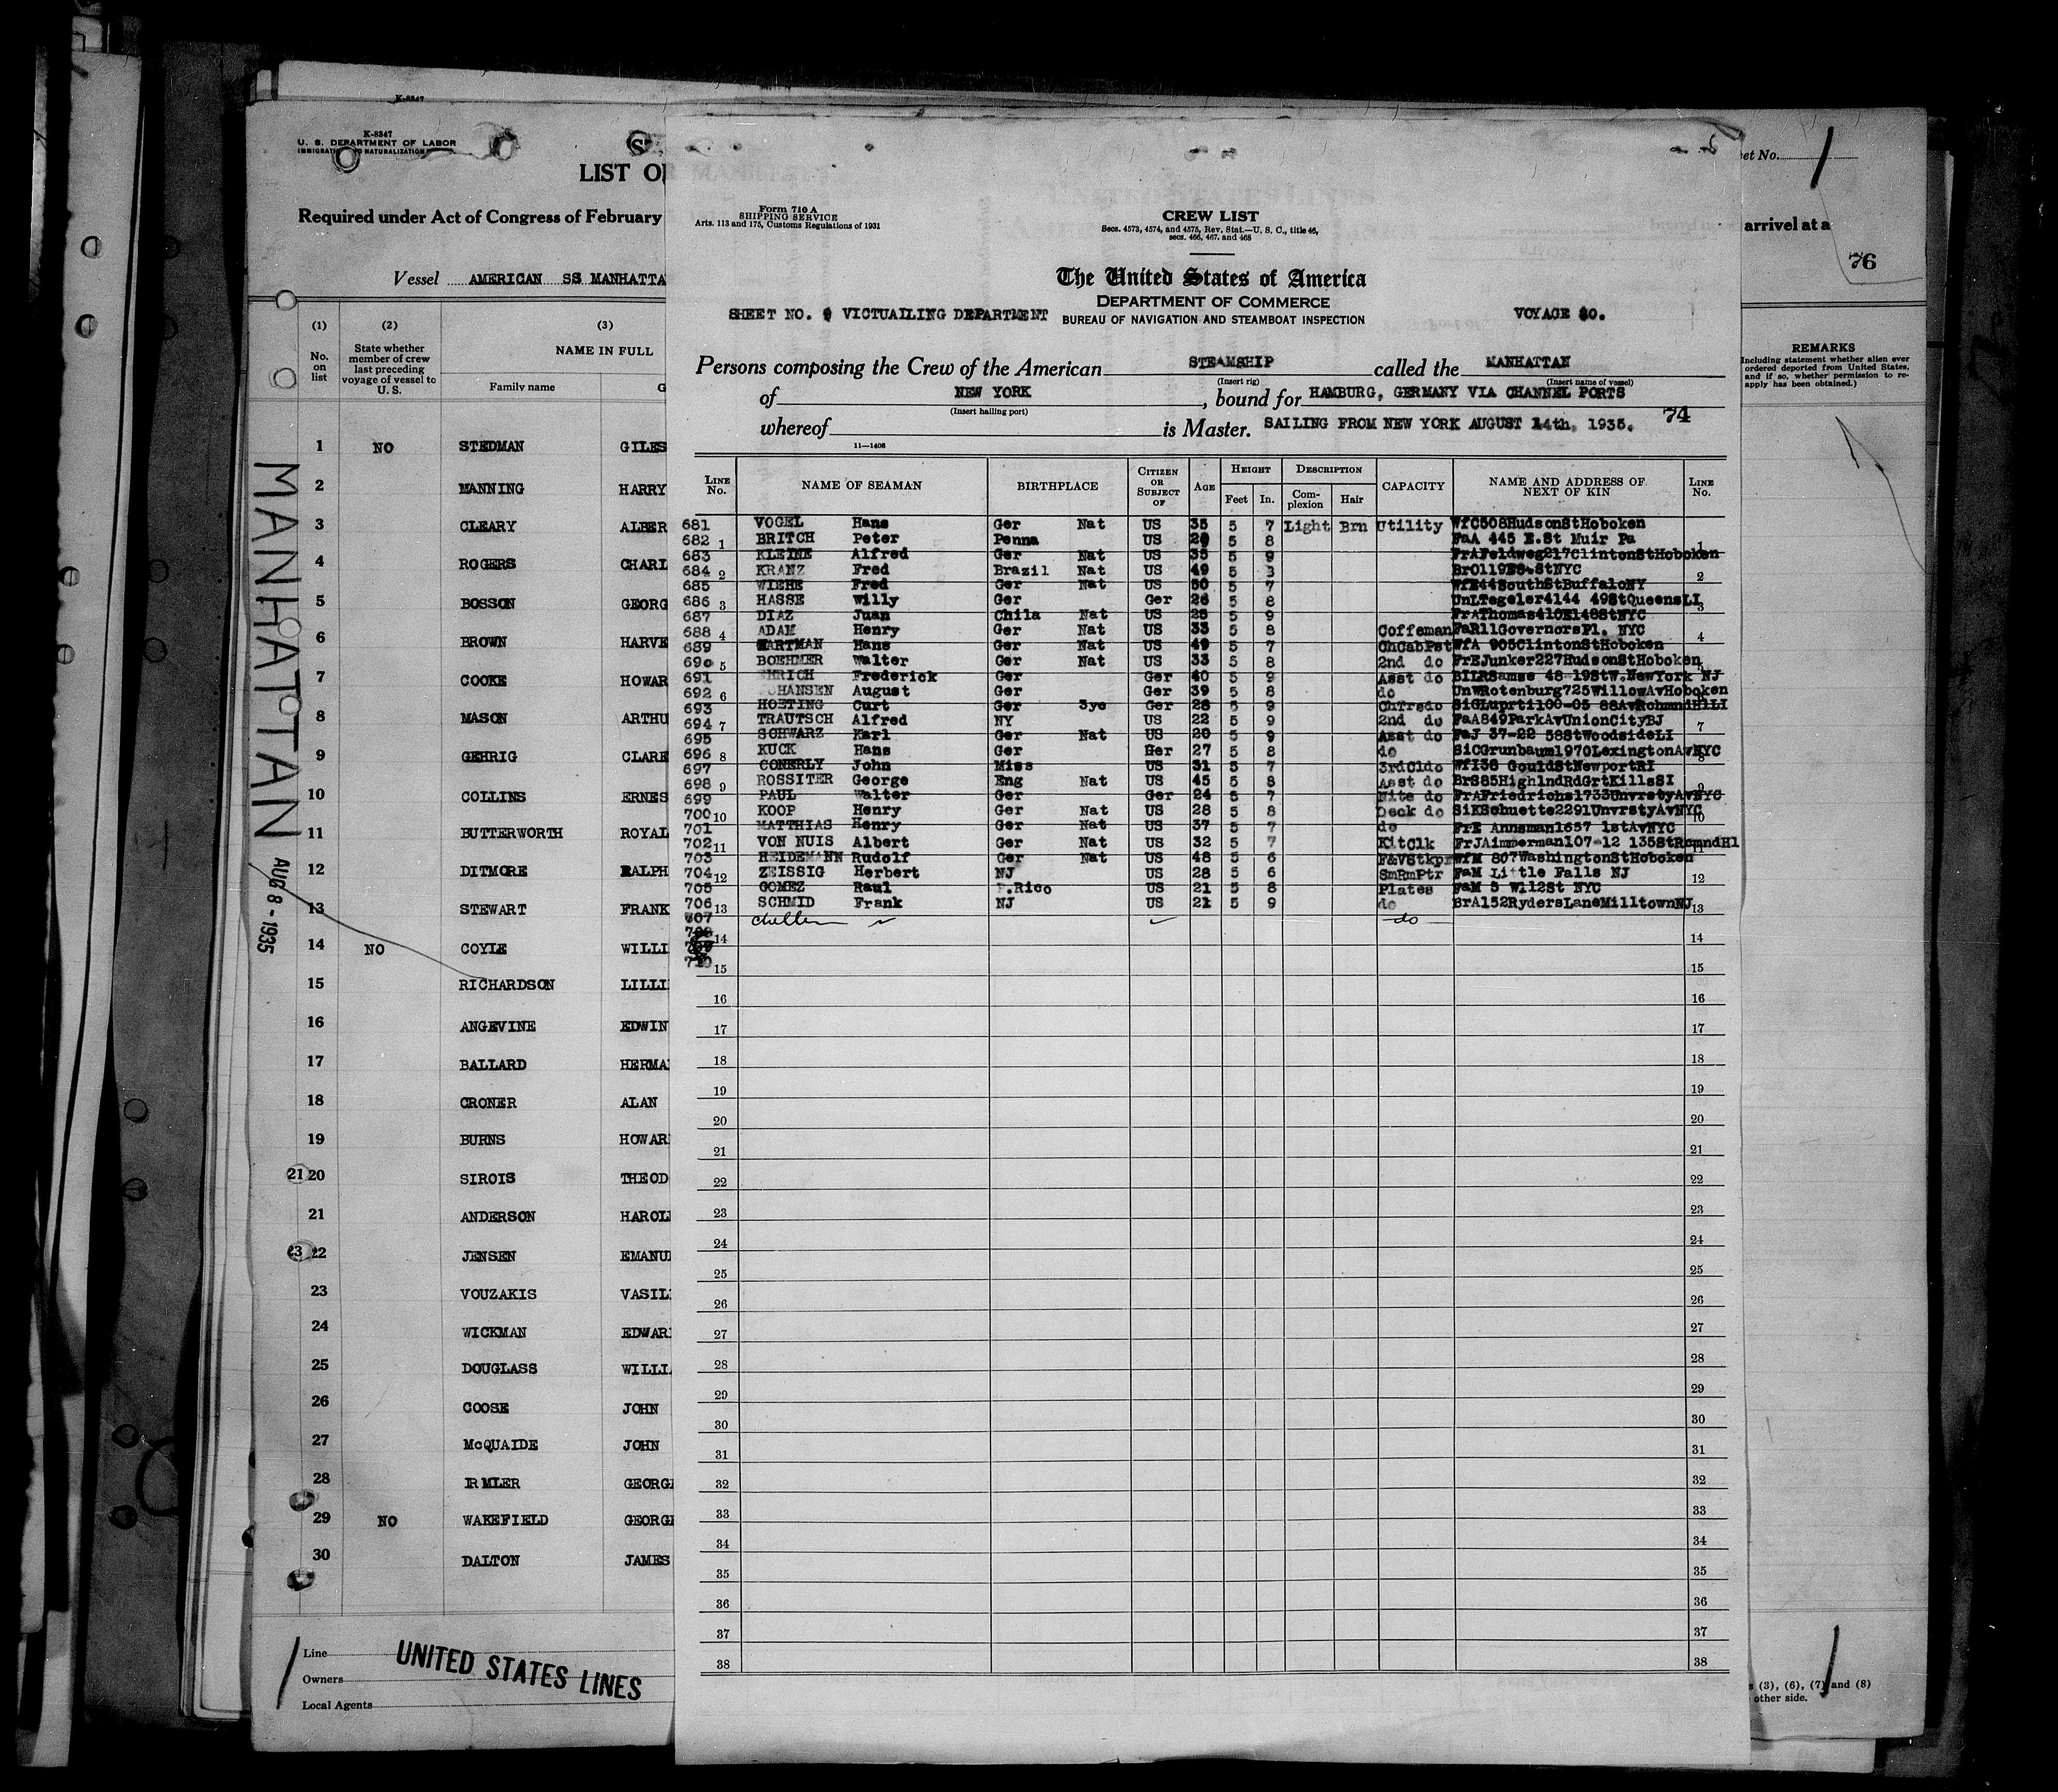 K-8347
K-8347
U. S. DEPARTMENT OF LABOR
IMMIGRATION AND NATURALIZATION
LIST OF
Required under Act of Congress of February
Vessel AMERICAN SS MANHATTA
(1) (2) (3)
No. on list
State whether member of crew last preceding voyage of vessel to U. S.
NAME IN FULL
Family name G
1 NO STEDMAN GILES
2 MANNING HARRY
3 CLEARY ALBER
4 ROGERS CHARL
5 BOSSON GEORG
6 BROWN HARVE
7 COOKE HOWAR
8 MASON ARTHU
9 GEHRIG CLARE
10 COLLINS ERNES
11 BUTTERWORTH ROYAL
12 DITMORE RALPH
13 STEWART FRANK
14 NO COYLE WILLI
15 RICHARDSON LILLI
16 ANGEVINE EDWIN
17 BALLARD HERMA
18 CRONER ALAN
19 BURNS HOWAR
21 20 SIROIS THEOD
21 ANDERSON HAROL
23 22 JENSEN EMANU
23 VOUZAKIS VASIL
24 WICKMAN EDWAR
25 DOUGLASS WILLI
26 COOSE JOHN
27 McQUAIDE JOHN
28 IRMLER GEORG
29 NO WAKEFIELD GEORG
30 DALTON JAMES
Line
Owners
Local Agents
UNITED STATES LINES
MANHATTAN
AUG 8 - 1935
Form 710 A
SHIPPING SERVICE
Arts. 113 and 175, Customs Regulations of 1931
CREW LIST
Secs. 4573, 4574, and 4575, Rev. Stat.—U. S. C., title 46,
secs. 466, 467, and 468
The United States of America
DEPARTMENT OF COMMERCE
SHEET NO. VICTUAILING DEPARTMENT
BUREAU OF NAVIGATION AND STEAMBOAT INSPECTION
VOYAGE 30.
Persons composing the Crew of the American STEAMSHIP called the MANHATTAN
(Insert rig) (Insert name of vessel)
of NEW YORK, bound for HAMBURG, GERMANY VIA CHANNEL PORTS
(Insert hailing port)
74
whereof is Master. SAILING FROM NEW YORK AUGUST 14th, 1935.
11—1408
LINE No. NAME OF SEAMAN BIRTHPLACE CITIZEN OR SUBJECT OF AGE HEIGHT Feet In. DESCRIPTION Complexion Hair CAPACITY NAME AND ADDRESS OF NEXT OF KIN LINE No.
681 VOGEL Hans Ger Nat US 35 5 7 Light Brn Utility WfC508HudsonStHoboken
682 BRITCH Peter Penna US 5 8 FaA 445 E.St Muir Pa
683 KLEINE Alfred Ger Nat US 35 5 9 FrAFeldweg217ClintonStHoboken
684 KRANZ Fred Brazil Nat US 49 5 3
685 WIEHE Fred Ger Nat US 50 5 7 WfE44SouthStBuffaloNY
686 HASSE Willy Ger Ger 26 5 8 UnLTegeler4144 49StQueensLI
687 DIAZ Juan Chila Nat US 25 5 9 FrAThomas410E148StNYC
688 ADAM Henry Ger Nat US 33 5 8 Coffeman FaR11GovernorsPl. NYC
689 HARTMAN Hans Ger Nat US 49 5 7 ChCabPst WfA 905ClintonStHoboken
690 BOEHMER Walter Ger Nat US 33 5 8 2nd do FrEJunker227HudsonStHoboken
691 EHRICH Frederick Ger Ger 40 5 9 Asst do
692 JOHANSEN August Ger Ger 39 5 8 do UnWRotenburg725WillowAvHoboken
693 HOETING Curt Ger 3yc Ger 28 5 9
694 TRAUTSCH Alfred NY US 22 5 9 2nd do FaA849ParkAvUnionCityBJ
695 SCHWARZ Karl Ger Nat US 20 5 9 Asst do FaJ 37-22 58StWoodsideLI
696 KUCK Hans Ger Ger 27 5 8 do SiCGrunbaum1970LexingtonAvNYC
697 CONERLY John Miss US 31 5 7 3rdCldo WfI36 GouldStNewportRI
698 ROSSITER George Eng Nat US 45 5 8 Asst do BrS85HighlndRdGrtKillsSI
699 PAUL Walter Ger Ger 24 5 7 Nite do FrAFriedrichs1733UnvrstyAvNYC
700 KOOP Henry Ger Nat US 28 5 8 Deck do SiKSchuette2291UnvrstyAvNYC
701 MATTHIAS Henry Ger Nat US 37 5 7 do FrE Annsman1657 1stAvNYC
702 VON NUIS Albert Ger Nat US 32 5 7 KitClk FrJAimmerman107-12 135StRcmndHl
703 HEIDEMANN Rudolf Ger Nat US 48 5 6 F&VStkpr WfM 807WashingtonStHoboken
704 ZEISSIG Herbert NJ US 28 5 6 SmRmPtr FaM Little Falls NJ
705 GOMEZ Raul P.Rico US 21 5 8 Plates FaM 5 W.112St NYC
706 SCHMID Frank NJ US 21 5 9 do BrA152RydersLaneMilltownNJ
707 do
1 1
2 2
3 3
4 4
5 5
6 6
7 7
8 8
9 9
10 10
11 11
12 12
13 13
14 14
15 15
16 16
17 17
18 18
19 19
20 20
21 21
22 22
23 23
24 24
25 25
26 26
27 27
28 28
29 29
30 30
31 31
32 32
33 33
34 34
35 35
36 36
37 37
38 38
et No. 1
arrival at a
76
REMARKS
(Including statement whether alien ever
ordered deported from United States,
and if so, whether permission to re-
apply has been obtained.)
s (3), (6), (7) and (8)
other side.